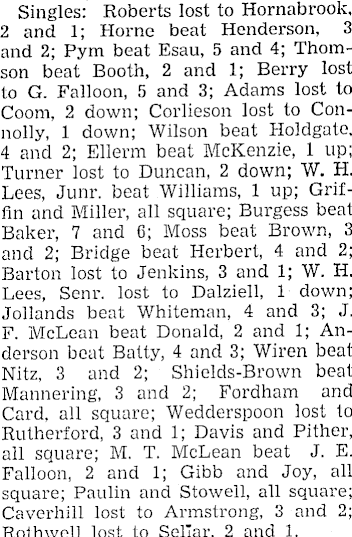 Singles: Roberts lost to Hornabrook,
2 and 1; Horne beat Henderson, 3
and 2; Pym beat Esau, 5 and 4; Thom-
son beat Booth, 2 and 1; Berry lost
to G. Falloon, 5 and 3; Adams lost to
Coom, 2 down; Corlieson lost to Con-
nolly, 1 down; Wilson beat Holdgate,
4 and 2; Ellerm beat McKenzie, 1 up;
Turner lost to Duncan, 2 down; W. H.
Lees, Junr. beat Williams, 1 up; Grif-
fin and Miller, all square; Burgess beat
Baker, 7 and 6; Moss beat Brown, 3
and 2; Bridge beat Herbert, 4 and 2;
Barton lost to Jenkins, 3 and 1; W. H.
Lees, Senr. lost to Dalziell, 1 down;
Jollands beat Whiteman, 4 and 3; J.
F. McLean beat Donald, 2 and 1; An-
derson beat Batty, 4 and 3; Wiren beat
Nitz, 3 and 2; Shields-Brown beat
Mannering, 3 and 2; Fordham and
Card, all square; Wedderspoon lost to
Rutherford, 3 and 1; Davis and Pither,
all square; M. T. McLean beat J. E.
Falloon, 2 and 1; Gibb and Joy, all
square; Paulin and Stowell, all square;
Caverhill lost to Armstrong, 3 and 2;
Rothwell lost to Sellar, 2 and 1.